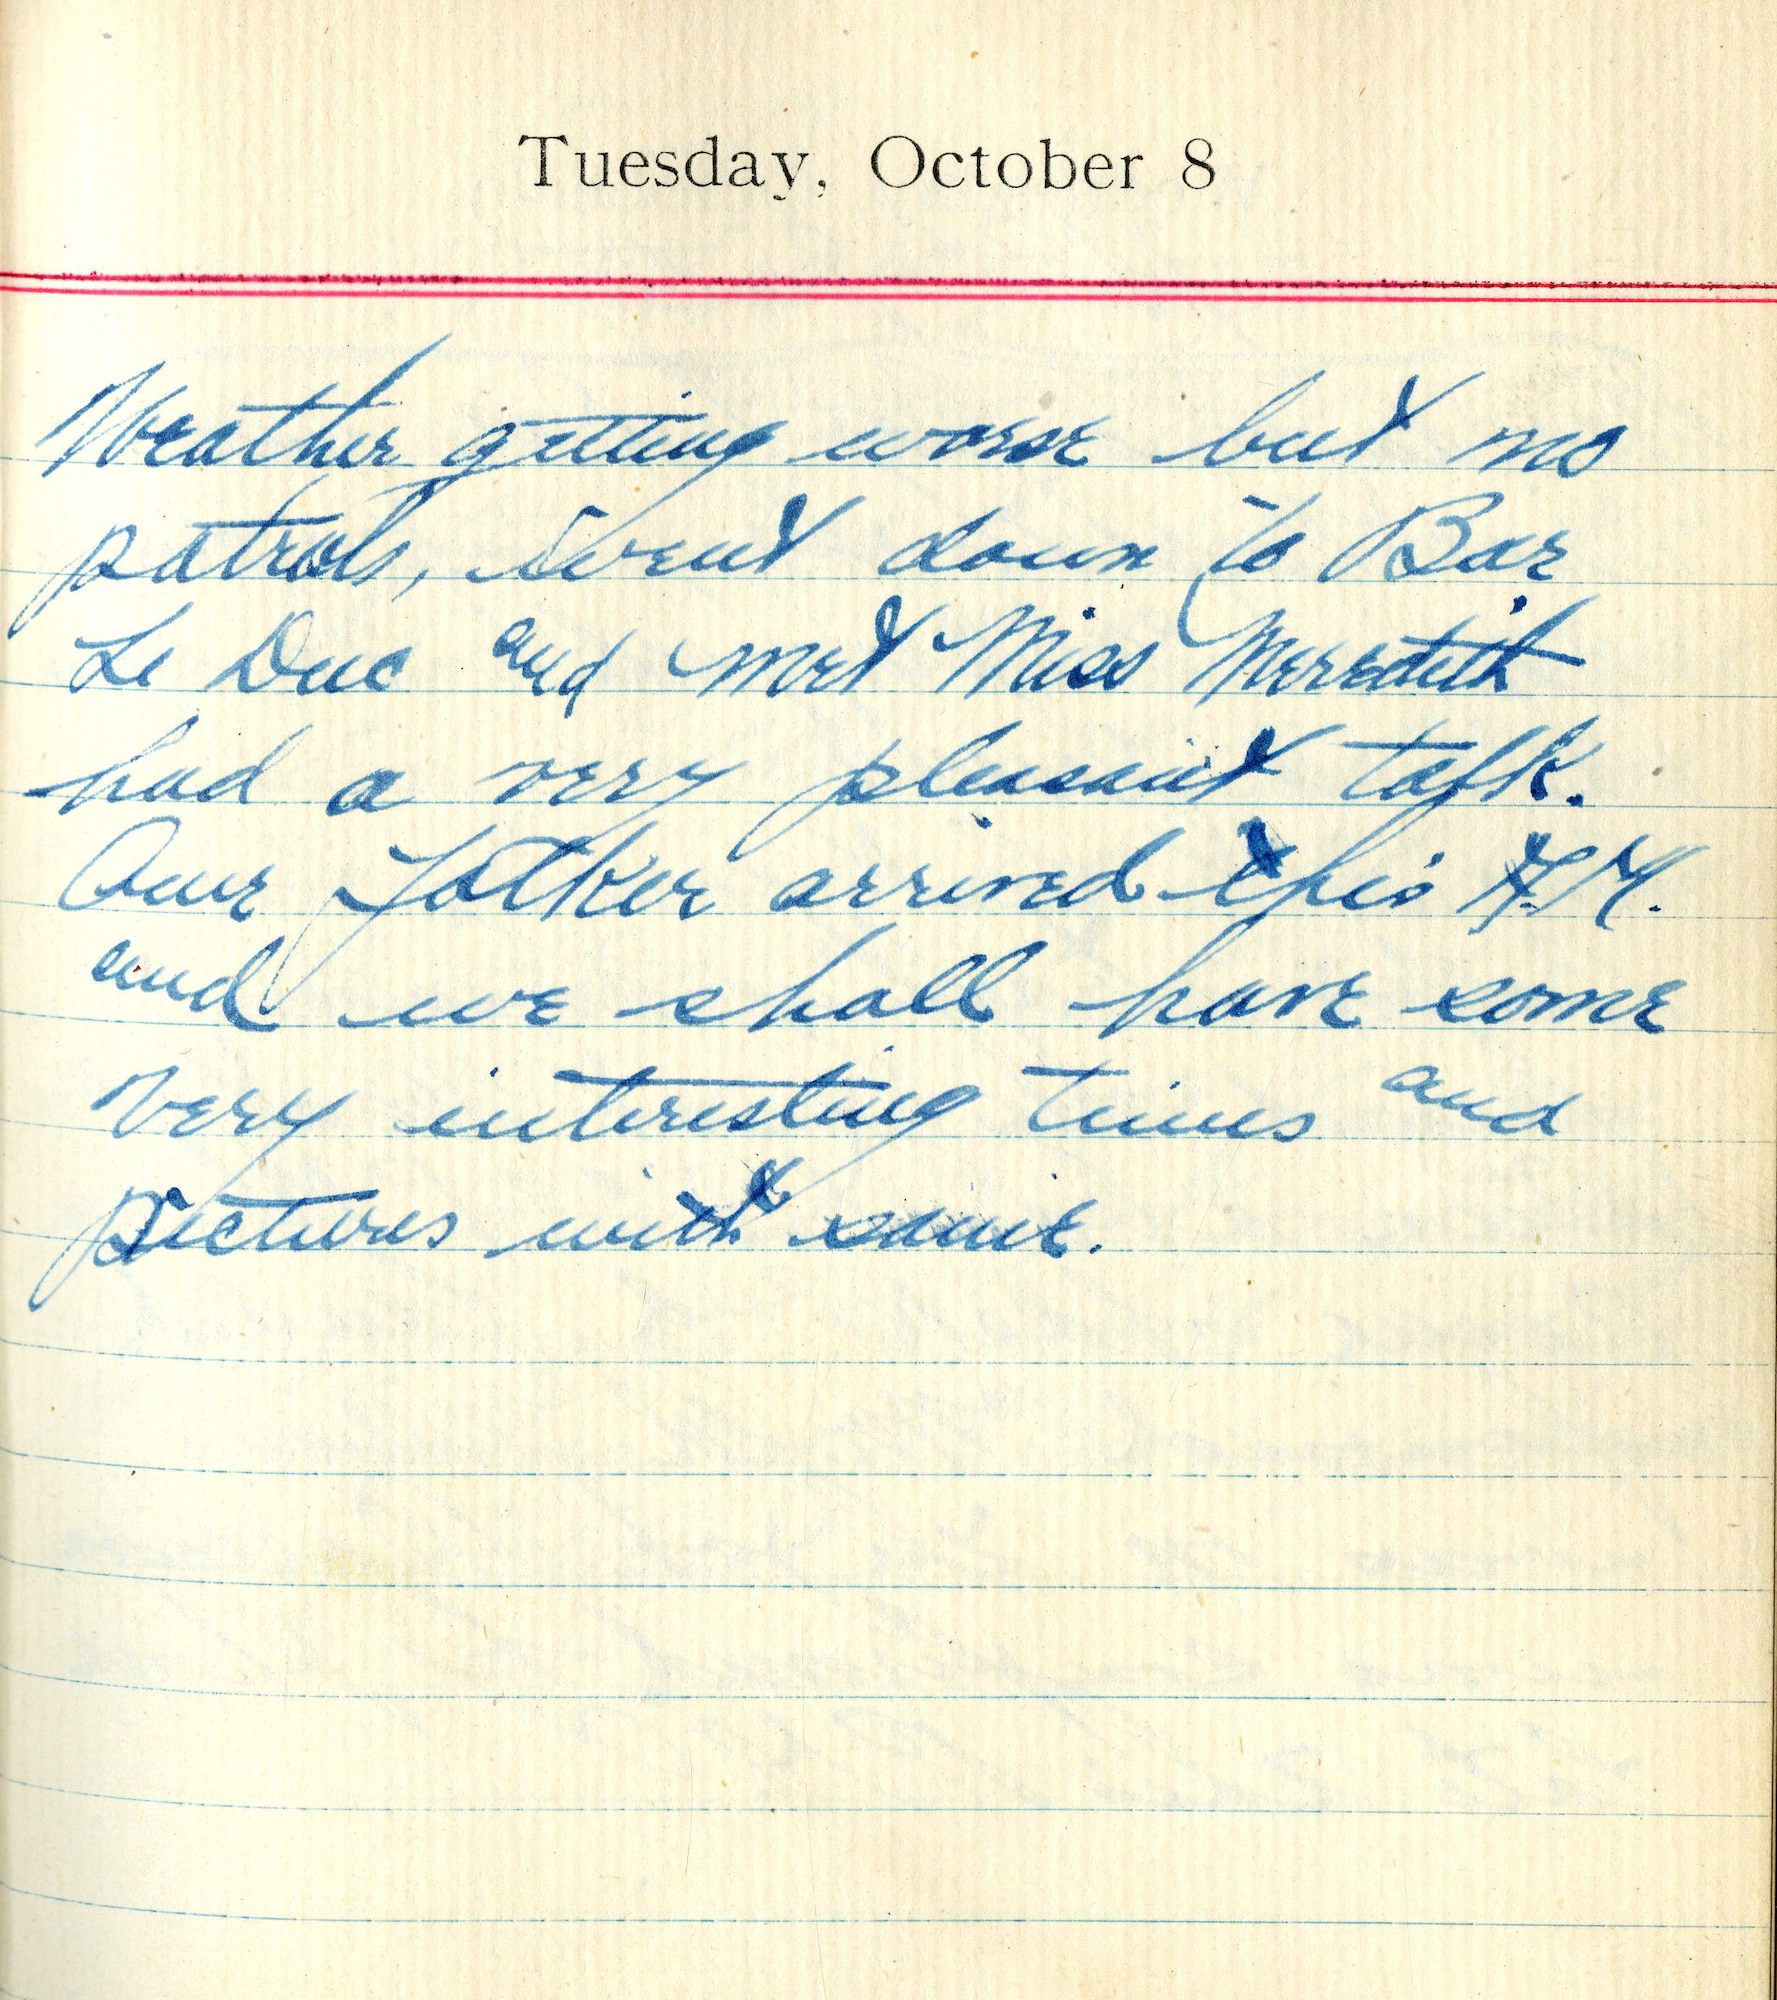 Tuesday, October 8
Weather getting worse but no
patrols, Went down to Bar
Le Duc and met Miss Meredith
had a very pleasant talk.
Our Fokker arrived this A.M.
and we shall have some
very interesting times and
pictures with same.